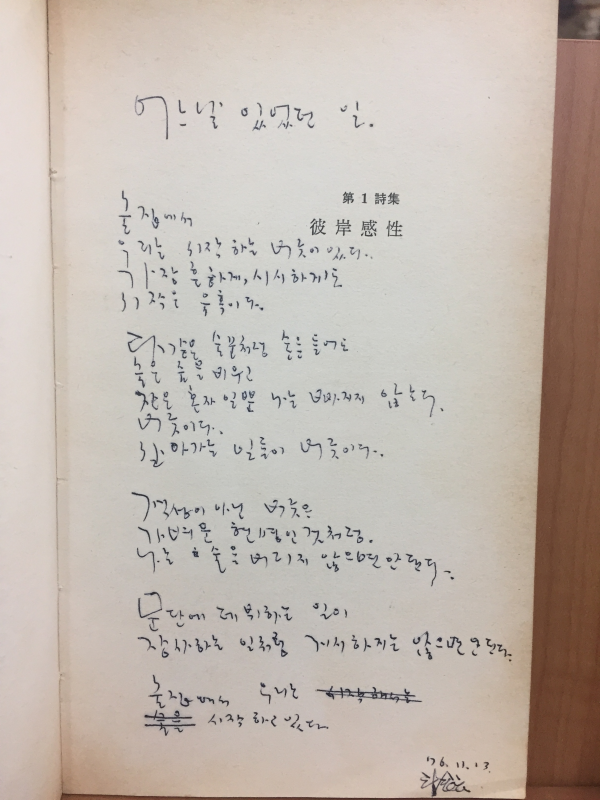 어느날 있었던 일.
第1詩集
彼岸感性
술집에서
우리는 시작하는 버릇이 있다.
가장 흔하게, 시시하게도
시작은 유혹이다.
술은 들어도
술은 줄을 비우고
잔은 혼자일뿐 나는 빠지지 않는다.
버릇이다.
살아가는 일들이 버릇이다.
버릇은
나는 술을 버리지 않으면 안된다.
문단에 데뷔하는 일이
장사하는 일처럼 게시하지는 않으면 안된다.
술집에서 우리는
술은 시작하고 있다.
'76.11.13.